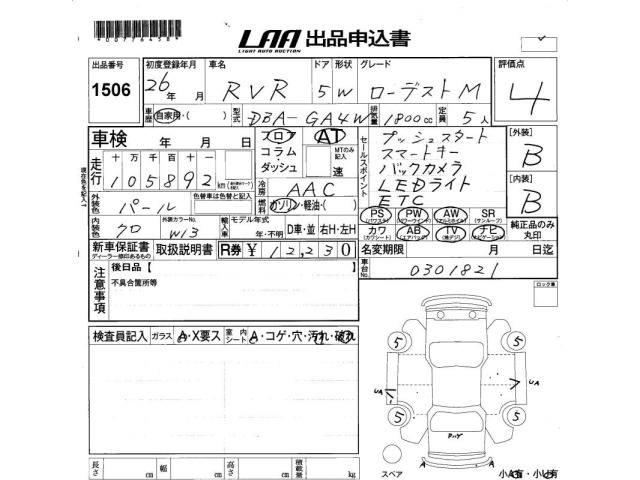 LAA 出品申込書
LIGHT AUTO AUCTION
出品番号 初度登録年月 車名 ドア 形状 グレード 評価点
1506 26年 月 RVR 5 W ローデスト M 4
車歴 自家用・( ) 型式 DBA-GA4W 排気量 1800cc 定員 5人
車検 年 月 日
フロア・コラム・ダッシュ AT MTのみ記入 速
セールスポイント
プッシュスタート
スマートキー
バックカメラ
LEDライト
ETC
[外装] B
[内装] B
走行 十万千百十 105892 km
現在色を記入
冷房 AAC
外装色 パール 色替車は色替と記入 燃料 ガソリン・軽油・( )
PS (パワステ) PW (パワーウィンド) AW (アルミホイル) SR (サンルーフ)
カワ (カワシート) AB (エアバッグ) TV (地デジ) ナビ (ナビゲーション)
純正品のみ丸印
内装色 クロ 外装カラーNo. W13 輸入車 モデル年式 年・不明 D車・並 右H・左H
新車保証書 ディーラー捺印あるもの 取扱説明書 R券 ¥ 12,230
名変期限 月 日迄
車台No. 0301821
注意事項
後日品【 】
不具合箇所等
ロック東
検査員記入 ガラス A・X要ス 室内シート A・コゲ・穴・汚れ・破れ
5 5
UA UA
5 5
A A
スペア
小A有・小U有
長さ cm 幅 cm 高さ cm 積載量 kg